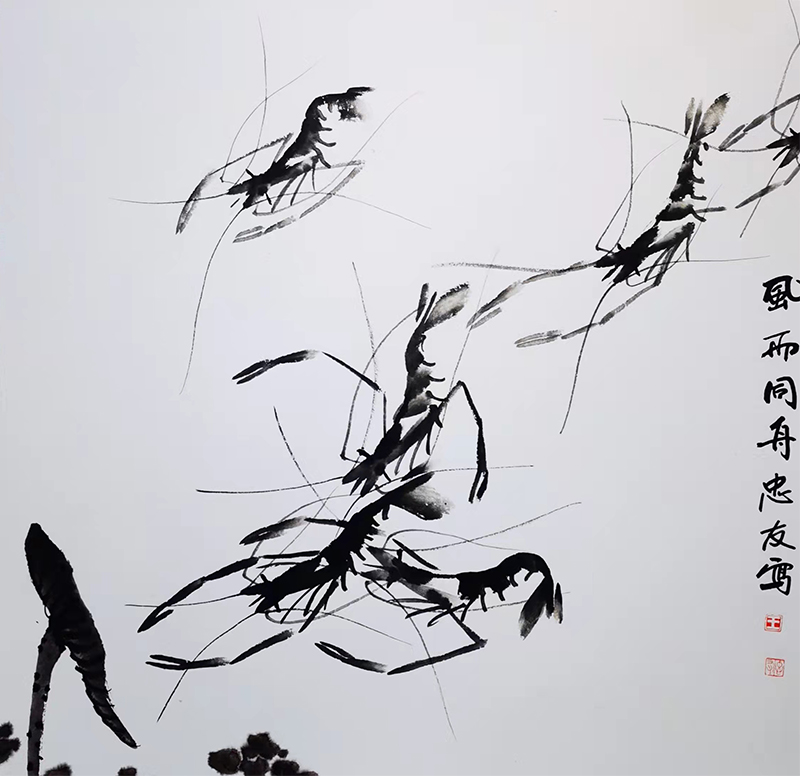 風雨同舟忠友寫
王